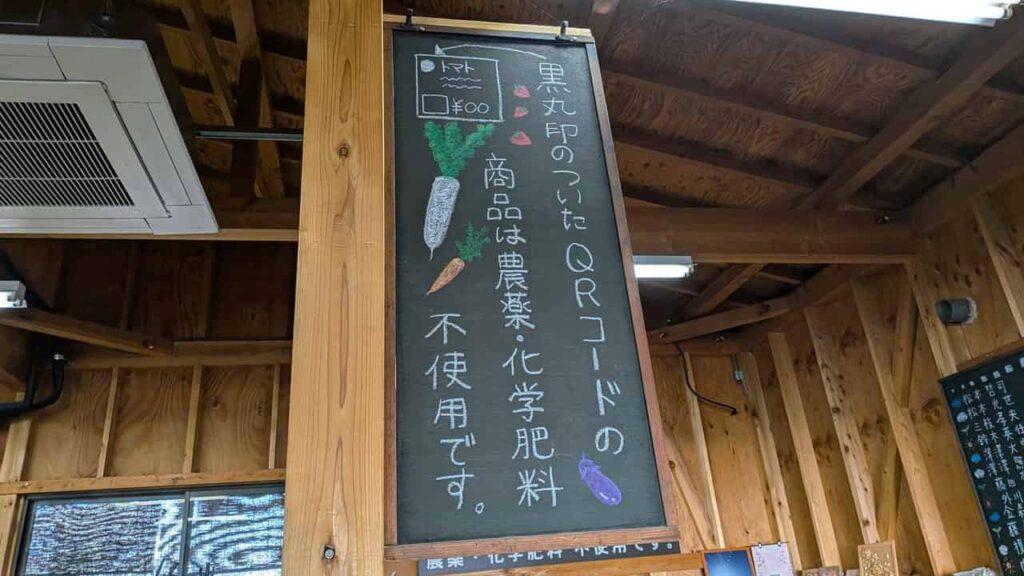 黒丸印のついたQRコードの
商品は農薬・化学肥料
不使用です。
トマト
¥00
農薬・化学肥料 不使用です。